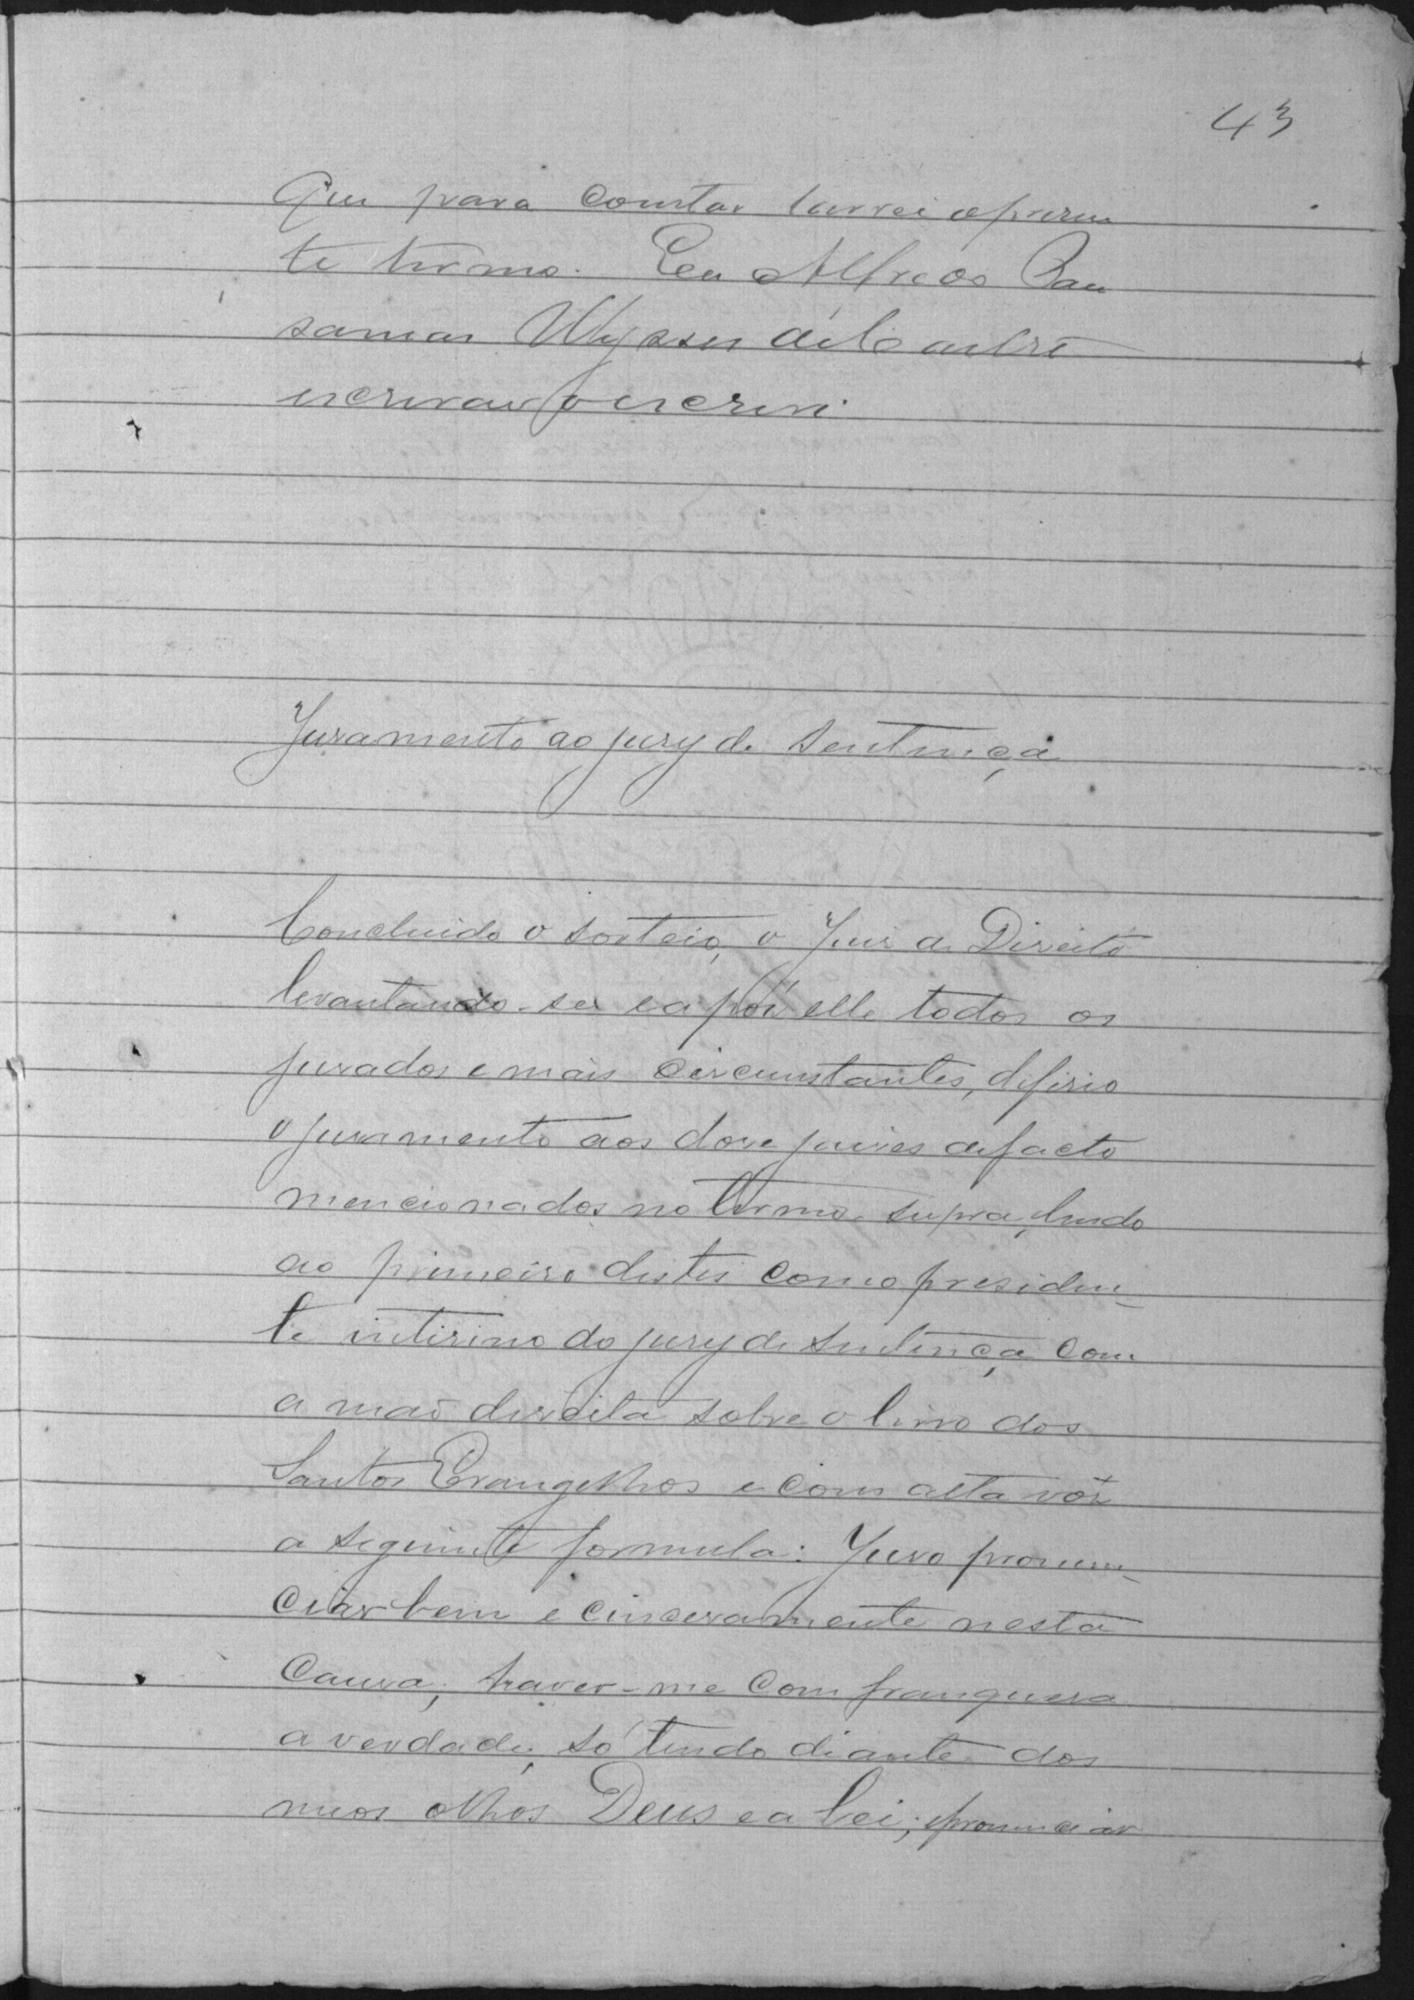 43
Que para constar lavrei o presen
te termo. Eu Alfredo Pau
sanias Ulysses de Castro
escrivão o escrevi.
Juramento ao jury de Sentença
Concluido o sorteio, o Juiz de Direito
levantando-se e após elle todos os
jurados e mais circumstantes, diferio
o juramento aos doze juizes de facto
mencionados no termo supra, lendo
ao primeiro destes como presiden-
te intirino do jury de Sentença com
a mão direita sobre o livro dos
Santos Evangelhos e com alta voz
a seguinte formula: Juro pronun-
ciar bem e cinseramente nesta
causa, haver-me com franqueza
a verdade, só tendo diante dos
meus olhos Deus e a lei; pronunciar